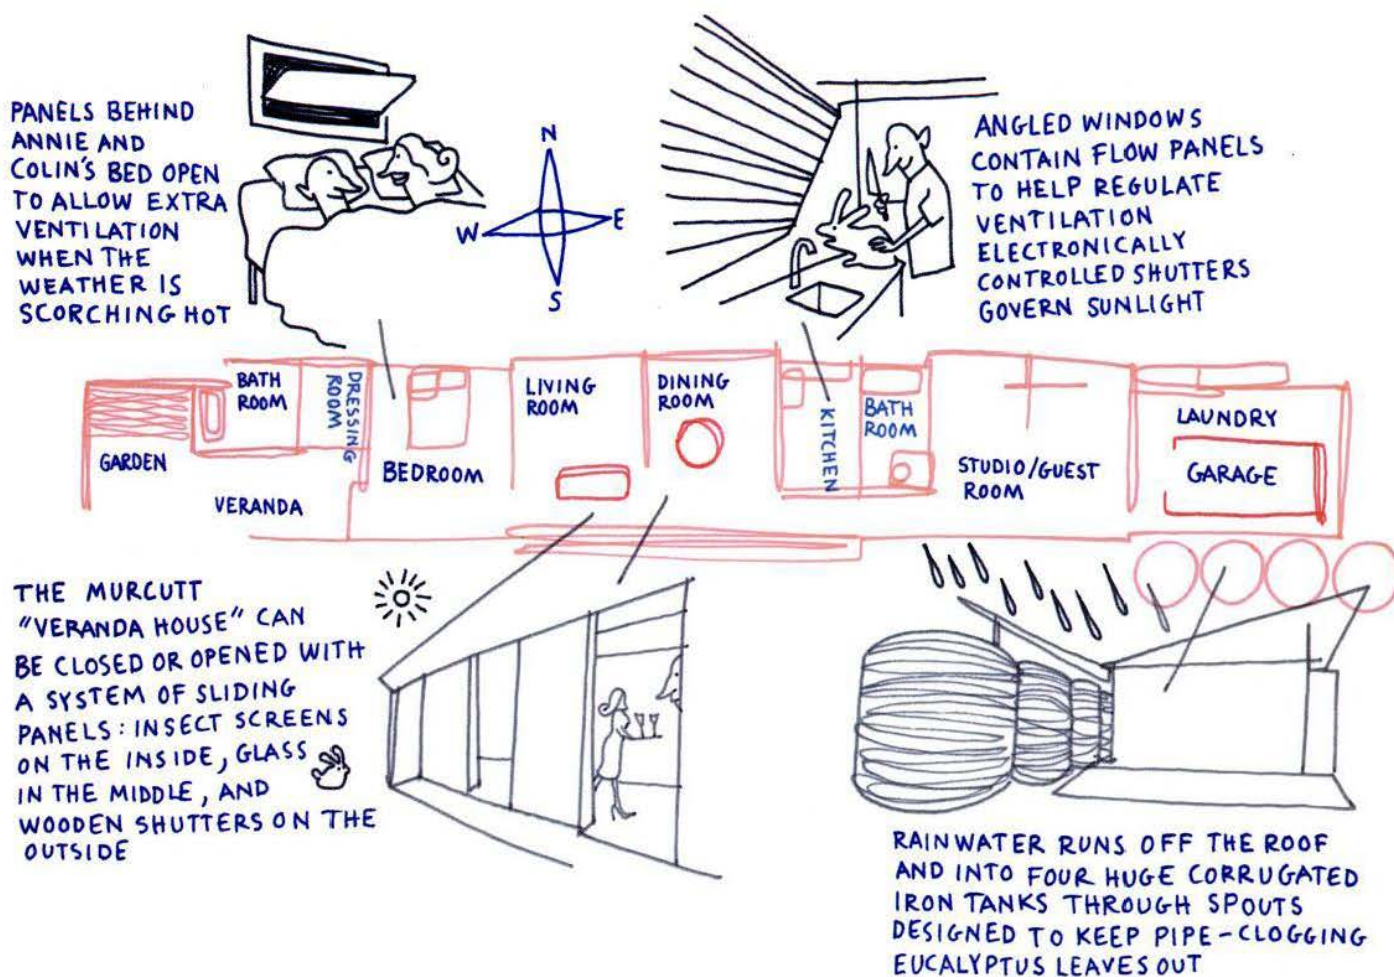 PANELS BEHIND
ANNIE AND
COLIN'S BED OPEN
TO ALLOW EXTRA
VENTILATION
WHEN THE
WEATHER IS
SCORCHING HOT
N
W
E
S
ANGLED WINDOWS
CONTAIN FLOW PANELS
TO HELP REGULATE
VENTILATION
ELECTRONICALLY
CONTROLLED SHUTTERS
GOVERN SUNLIGHT
GARDEN
BATH
ROOM
DRESSING
ROOM
VERANDA
BEDROOM
LIVING
ROOM
DINING
ROOM
KITCHEN
BATH
ROOM
STUDIO/GUEST
ROOM
LAUNDRY
GARAGE
THE MURCUTT
"VERANDA HOUSE" CAN
BE CLOSED OR OPENED WITH
A SYSTEM OF SLIDING
PANELS: INSECT SCREENS
ON THE INSIDE, GLASS
IN THE MIDDLE, AND
WOODEN SHUTTERS ON THE
OUTSIDE
RAINWATER RUNS OFF THE ROOF
AND INTO FOUR HUGE CORRUGATED
IRON TANKS THROUGH SPOUTS
DESIGNED TO KEEP PIPE-CLOGGING
EUCALYPTUS LEAVES OUT